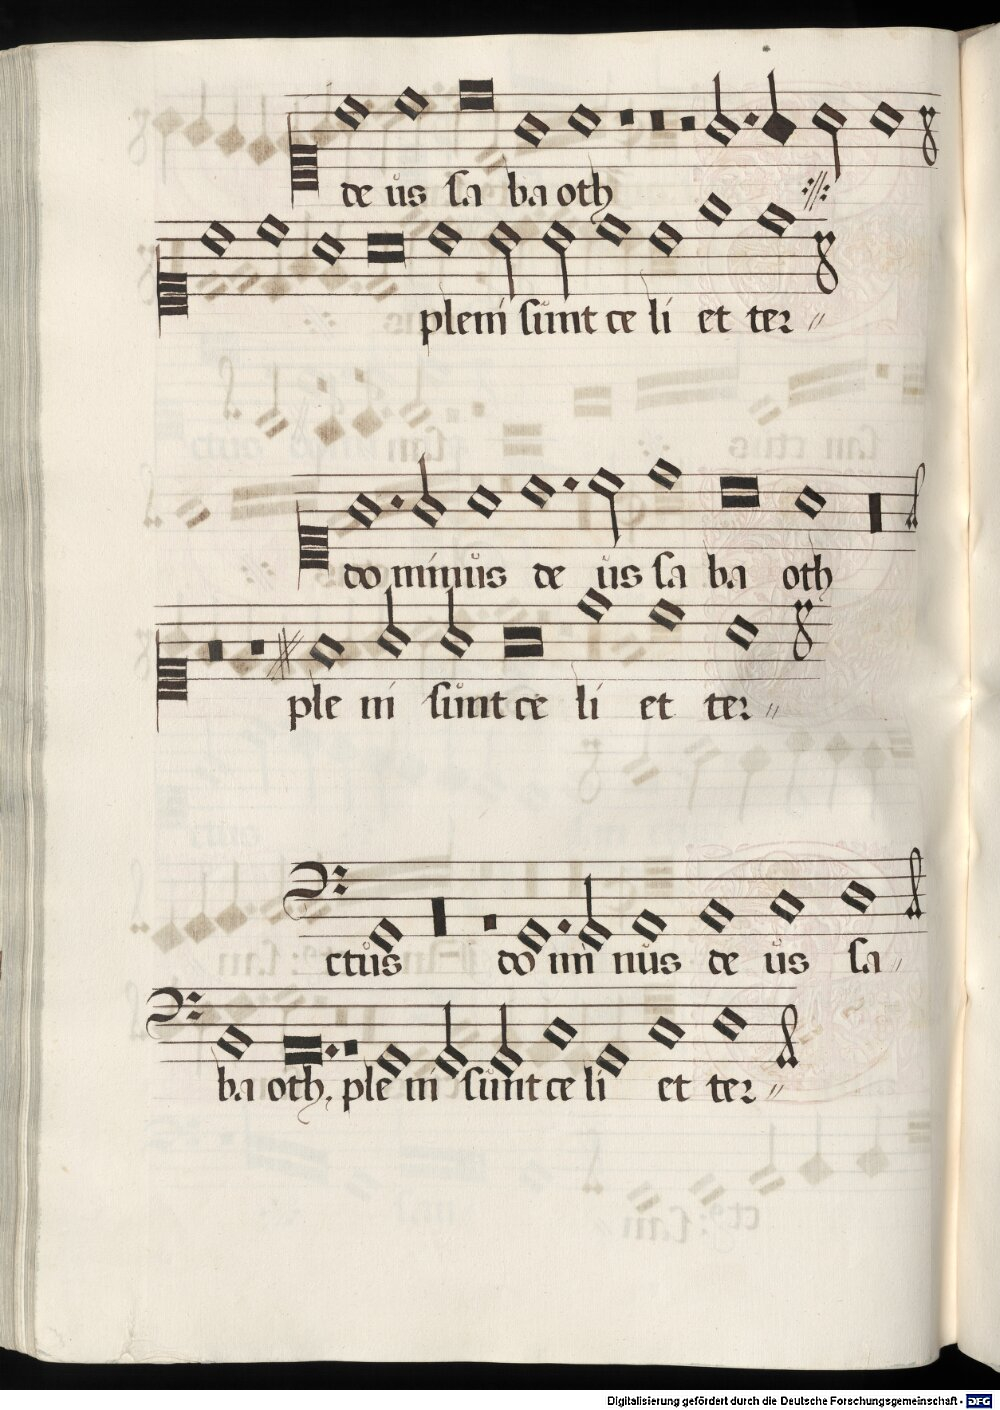 de us sa ba oth
pleni sunt ce li et ter
do minus de us sa ba oth
ple ni sunt ce li et ter
ctus do mi nus de us sa
ba oth, ple ni sunt ce li et ter
Digitalisierung gefördert durch die Deutsche Forschungsgemeinschaft - DFG